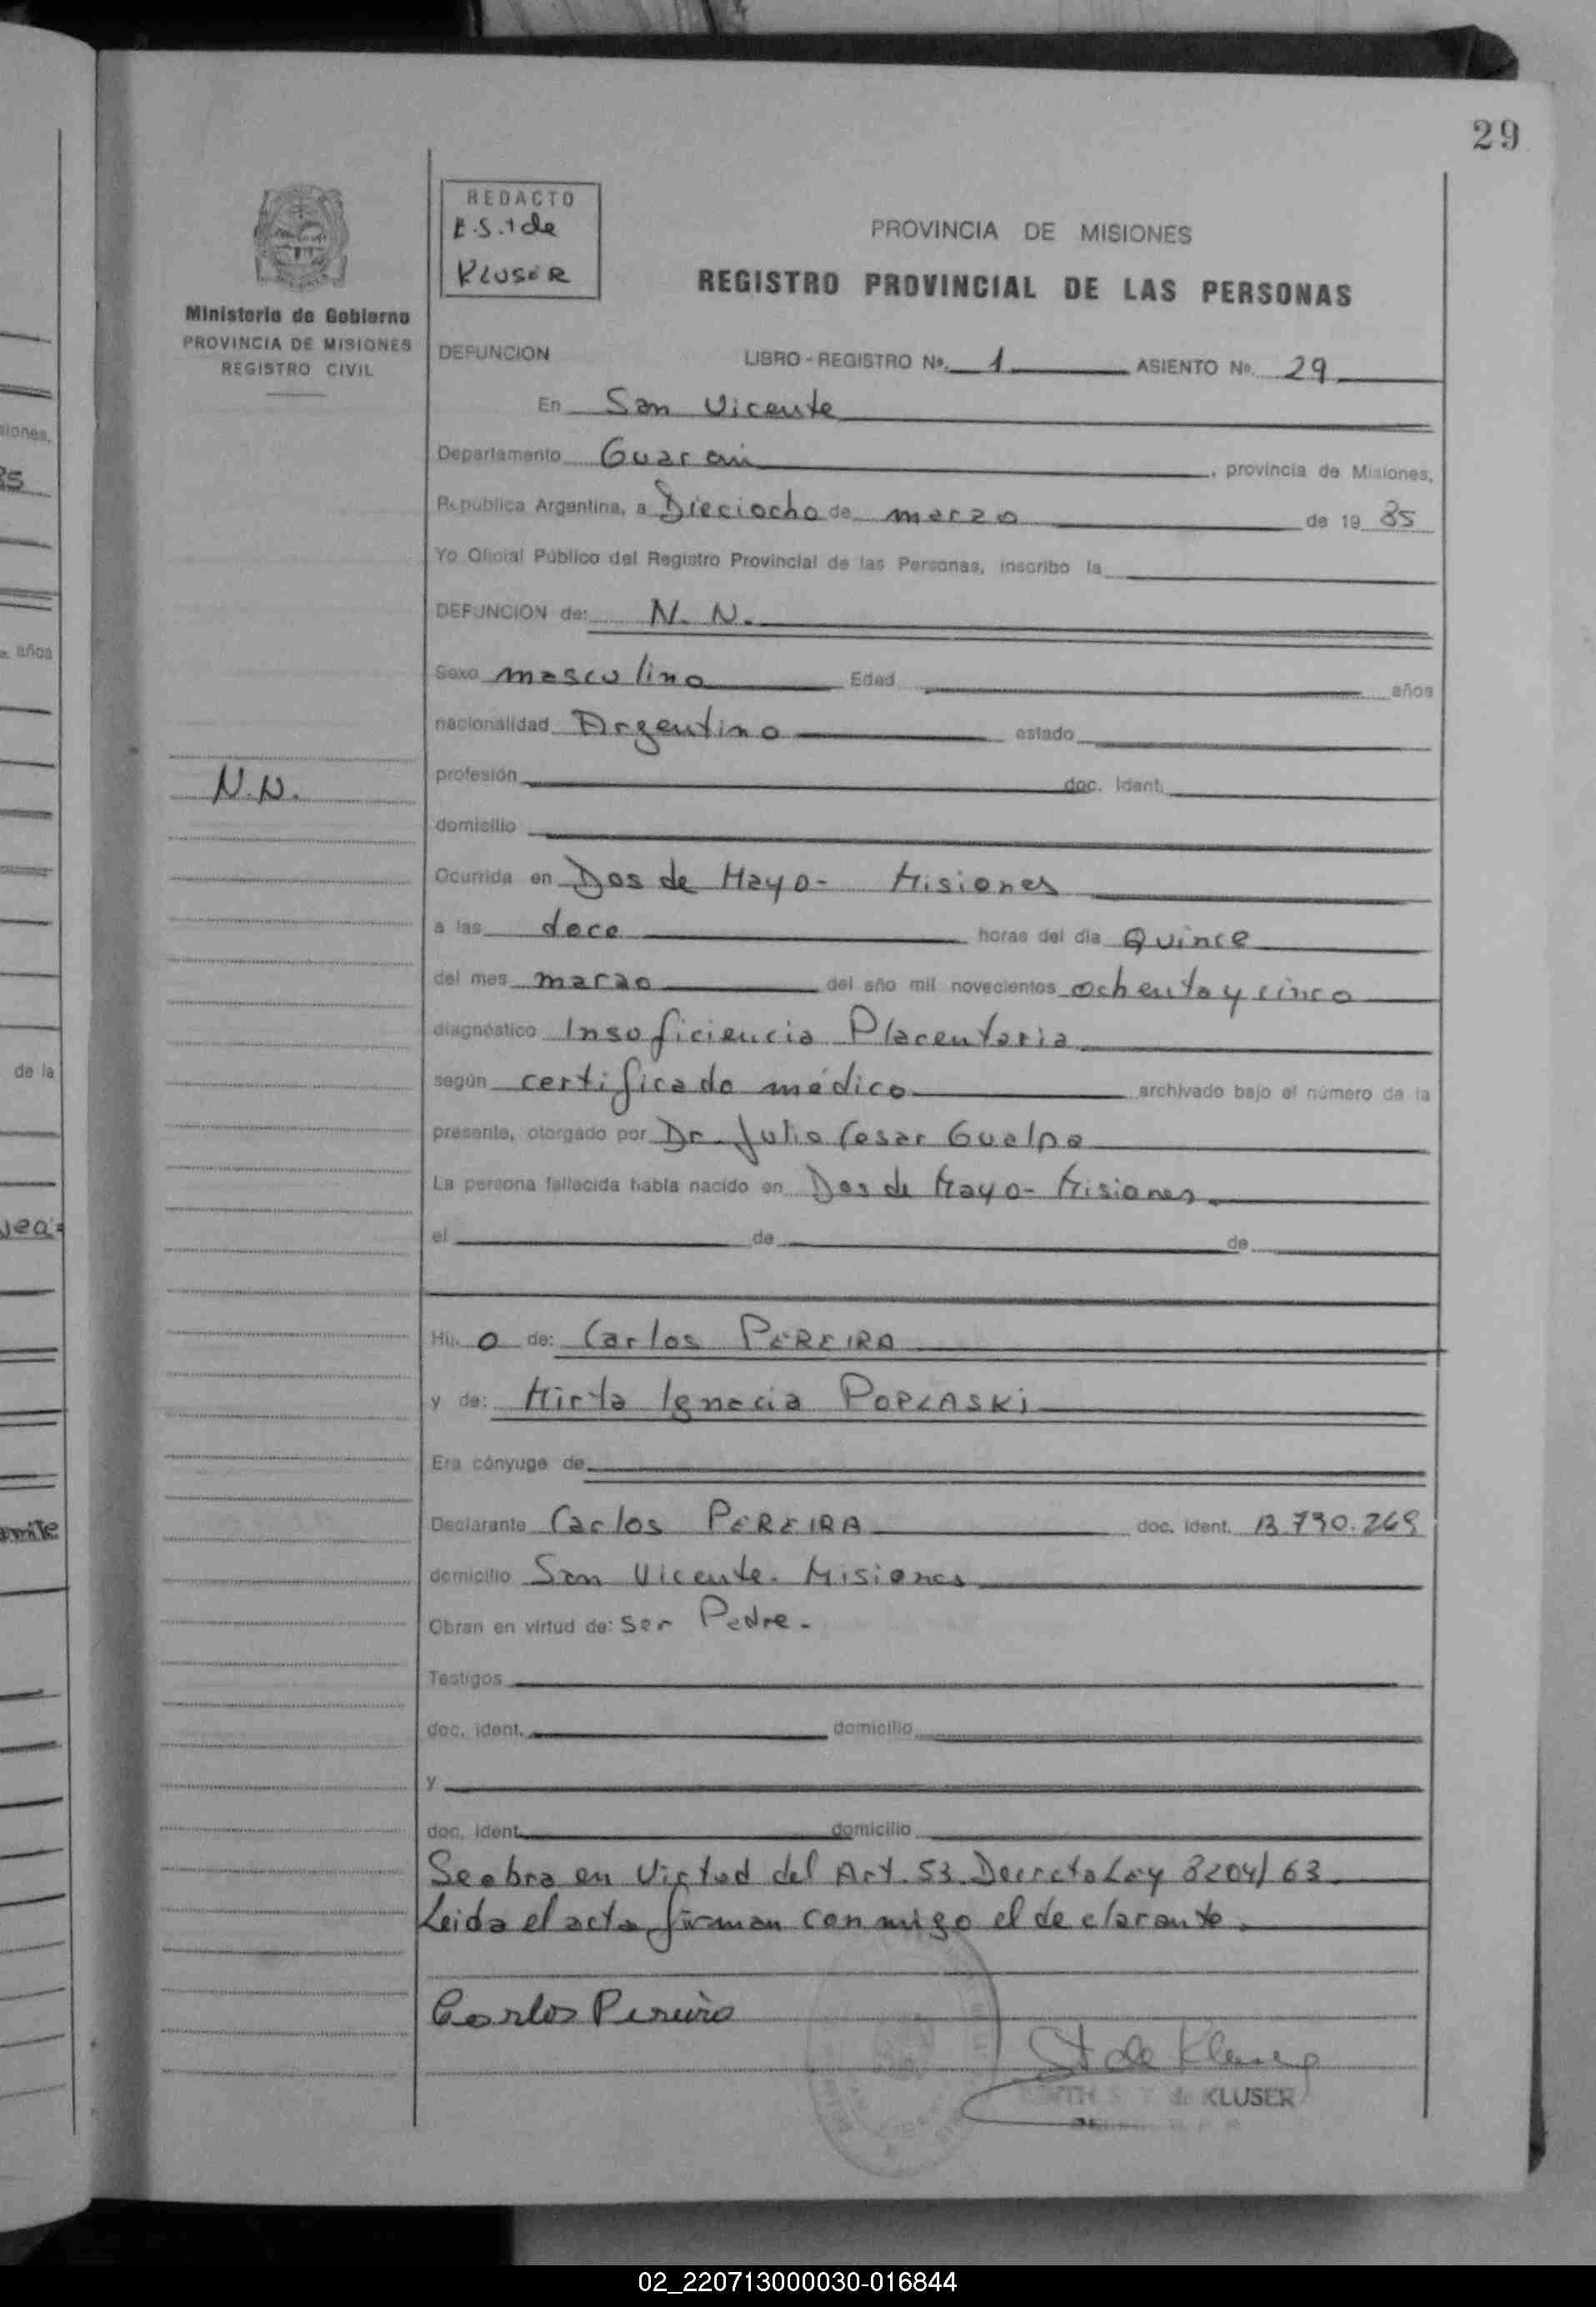 29
REDACTO
E.S.T de
KLUSER
PROVINCIA DE MISIONES
REGISTRO PROVINCIAL DE LAS PERSONAS
Ministerio de Gobierno
PROVINCIA DE MISIONES
REGISTRO CIVIL
DEFUNCION LIBRO - REGISTRO Nº. 1 ASIENTO Nº. 29
En San Vicente
Departamento Guarani, provincia de Misiones,
República Argentina, a Dieciocho de marzo de 19 85
Yo Oficial Público del Registro Provincial de las Personas, inscribo la
DEFUNCION de: N. N.
Sexo masculino Edad años
nacionalidad Argentino estado
N.N.
profesión doc. ident.
domicilio
Ocurrida en Dos de Mayo - Misiones
a las doce horas del día Quince
del mes marzo del año mil novecientos ochenta y cinco
diagnóstico Insuficiencia Placentaria
según certificado médico archivado bajo el número de la
presente, otorgado por Dr. Julio Cesar Gualpa
La persona fallecida había nacido en Dos de Mayo - Misiones
el de de
Hij o de: Carlos PEREIRA
y de: Mirta Ignacia POPLASKi
Era cónyuge de
Declarante Carlos PEREIRA doc. ident. 13.790.269
domicilio San Vicente. Misiones
Obran en virtud de: ser Padre.
Testigos
doc. ident. domicilio
y
doc. ident. domicilio
Se obra en Virtud del Art. 53 Decreto Ley 8204/63.
Leida el acta firman conmigo el declarante.
Carlos Pereira
ST de Kluser
de KLUSER
siones,
85
años
de la
02_220713000030-016844